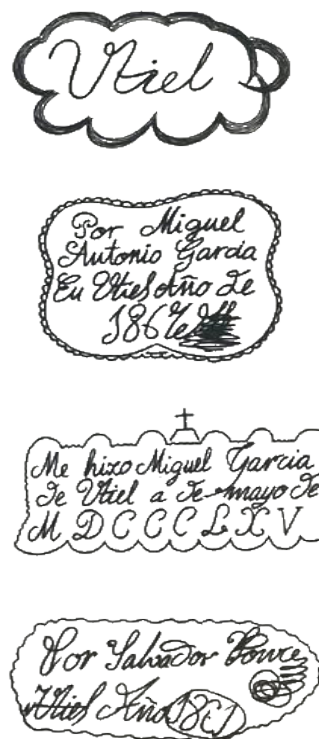 Utiel
Por Miguel
Antonio Garcia
En Utiel Año de
1867
Me hizo Miguel Garcia
de Utiel a de mayo de
M D C C C L X V
Por Salvador Ponce
Utiel Año 1801